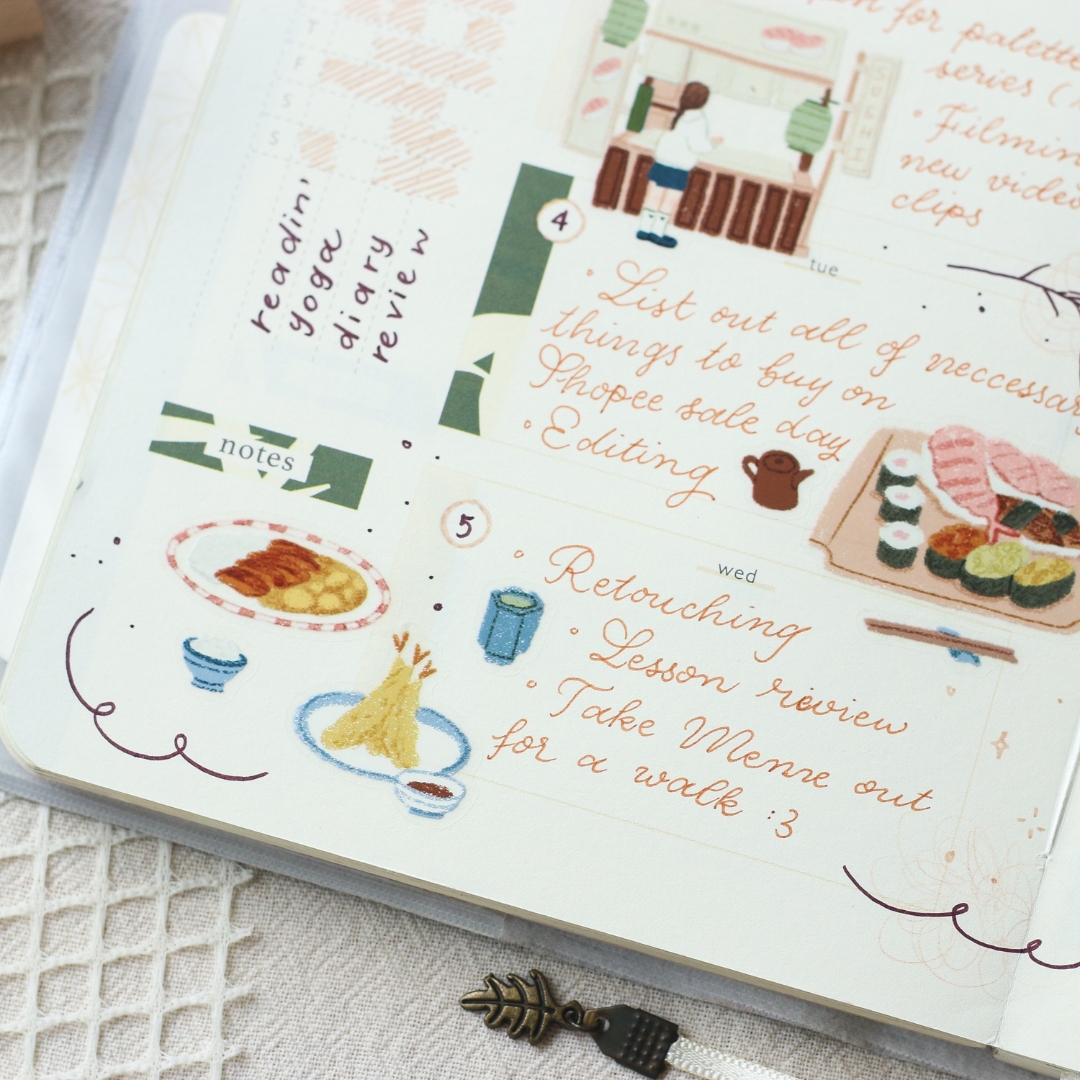 for palette
series (
• Filming
new video
clips
T
F
S
S
readin'
yoga
diary
review
SUSHI
4
tue
• List out all of neccessary
things to buy on
Shopee sale day
• Editing
notes
5
wed
• Retouching
• Lesson review
• Take Menre out
for a walk :3